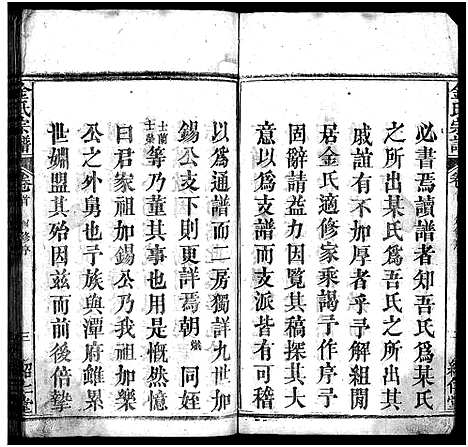 金氏宗譜
必書焉讀譜者知吾氏爲某氏
之所出某氏爲吾氏之所出其
戚誼有不加厚者乎予解組閒
居金氏適修家乘謁予作序予
固辭請力因覽其稿探其大
意以爲通譜而支派皆有根
以爲通譜而二房獨詳九世加
錫公支下則更詳焉朝棨同姪
士蘭士榮等乃董其事也用是憮然
曰君家祖加錫公乃我祖加樂
公之外舅也予族與潭府雖累
世婣盟其殆因玆而前後倍摯
金氏宗譜
卷首
三